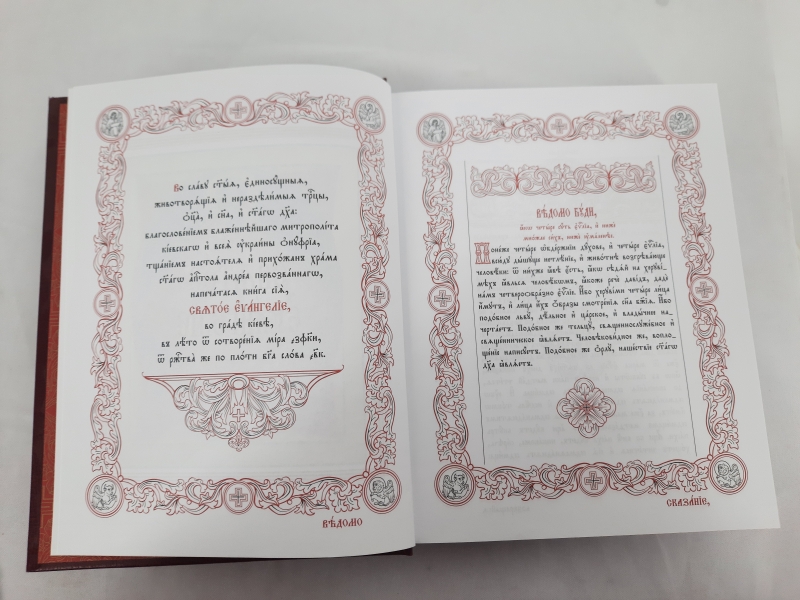 Во сла́вꙋ ст҃ы́ѧ, є҆диносꙋ́щныѧ,
животворѧ́щїѧ и҆ нераздѣ́лимыѧ трⷪ҇цы,
ѻ҆ц҃а̀, и҆ сн҃а, и҆ ст҃а́гѡ дх҃а:
благослове́нїемъ блаже́ннѣйшаго митрополі́та
кі́евскагѡ и҆ всеѧ̀ ᲂу҆краи́ны ѻ҆нꙋ́фрїа,
тща́нїемъ настоѧ́телѧ и҆ прихожа́нъ хра́ма
ст҃а́гѡ а҆пⷭ҇тола а҆ндре́а первозва́ннагѡ,
напеча́тасѧ кни́га сїѧ̀,
СВѦТО́Е Е҆ѴА́НГЕЛІЕ,
во гра́дѣ кі́евѣ,
въ лѣ́то ѿ сотворе́нїѧ мі́ра ҂зфк҃и,
ѿ рж҇тва̀ же по пло́ти бг҃а сло́ва ҂вк.
ВѢ́ДОМО
ВѢ́ДОМО БꙊ́ДИ,
ꙗ҆́кѡ четы́ре сꙋ́ть є҆ѵⷢ҇лїа, и҆ нижѐ
мно́жае си́хъ, нижѐ ᲂу҆ма́леннѣ.
Поне́же четы́ре ѡ҆бдержні́и дꙋ́хове, и҆ четы́ре є҆ѵⷢ҇лїа,
всю́дꙋ ды́шꙋще нетлѣ́нїе, и҆ живо́тнѣ возгрѣва́юще
человѣ́ки: ѿ ни́хже ꙗ҆́вѣ є҆́сть, ꙗ҆́кѡ сѣдѧ́й на херꙋві́-
мѣхъ ꙗ҆́вльсѧ человѣ́кѡмъ, ꙗ҆́коже речѐ даві́дъ, дадѐ
на́мъ четверсоѡбра́зно є҆ѵⷢ҇лїе. И҆́бо херꙋві́ми четы́ре ли́ца
и҆́мꙋтъ, и҆ ли́ца и҆́хъ ѻ҆́бразы смотре́нїѧ сн҃а бж҃їѧ. И҆́бо
подо́бное львꙋ̀, дѣ́льное и҆ ца́рское, и҆ влады́чнее на-
черта́етъ. Подо́бное же тельцꙋ̀, свѧщеннослꙋже́бное и҆
свѧще́нническое ꙗ҆влѧ́етъ. Человѣкови́дное же, вопло-
ще́нїе напи́сꙋетъ. Подо́бное же ѻ҆рлꙋ̀, наше́ствїе ст҃а́гѡ
дх҃а ꙗ҆влѧ́етъ.
СКАЗА́НІЕ,